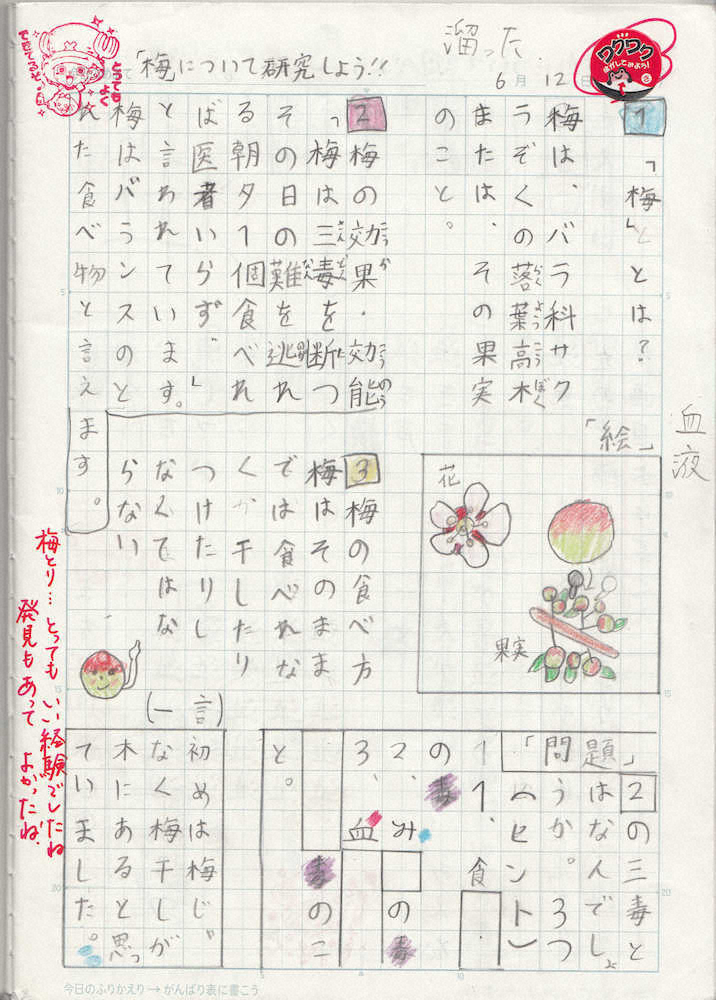 「梅について研究しよう!!
溜った
6月12日
とってもよく
できてるぞ。
ワクワク
1 「梅」とは?
梅は、バラ科サク
ラぞくの落葉高木
または、その果実
のこと。
2 梅の効果・効能
「梅は三毒を断つ
その日の難を逃れ
る朝夕1個食べれ
ば医者いらず」
と言われています。
梅はバランスのと
れた食べ物と言え
ます。
血液
「絵」
花
果実
3 梅の食べ方
梅はそのまま
では食べれな
くか干したり
つけたりし
なくてはな
らない
「問題」
2の三毒と
はなんでしょ
うか。3つ
(ヒント)
1、食
の毒
2、み の毒
3、血
毒のこ
と。
(一言)
初めは梅じ
なく梅干しが
木にあると思っ
ていました。
梅とり…とってもいい経験でしたね
発見もあってよかったね!
今日のふりかえり→がんばり表に書こう